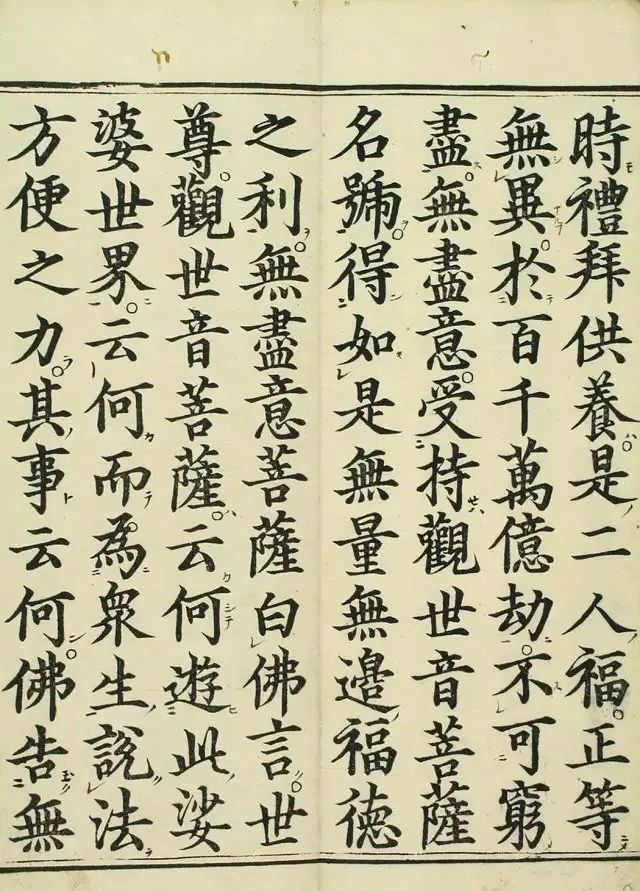 時禮拜供養是二人福正等
無異於百千萬億劫不可窮
盡無盡意受持觀世音菩薩
名號得如是無量無邊福德
之利無盡意菩薩白佛言世
尊觀世音菩薩云何遊此娑
婆世界云何而為眾生說法
方便之力其事云何佛告無